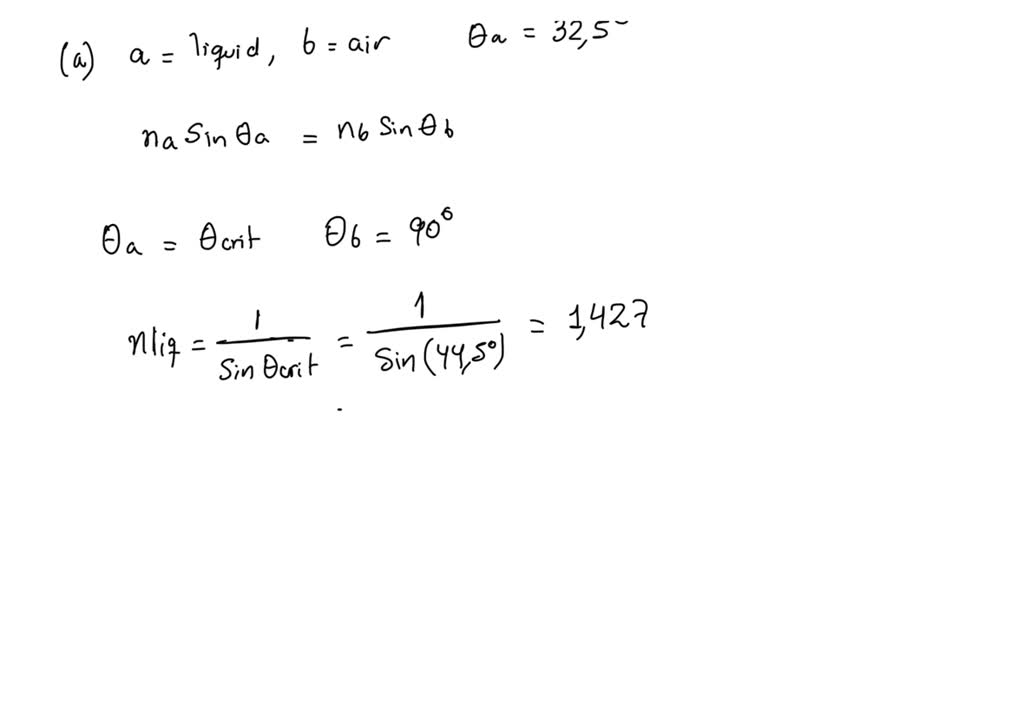 (a) a = liquid, b = air θa = 32,5°
na Sin θa = nb Sin θb
θa = θcrit θb = 90°
nliq = 1/Sin θcrit = 1/Sin (44,5°) = 1,427